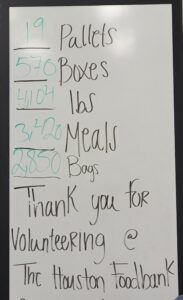 19 Pallets
570 Boxes
4,104 lbs
3,420 Meals
2850 Bags
Thank you for
Volunteering @
The Houston Foodbank